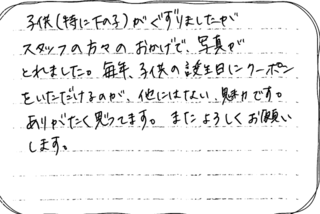 子供（特に下の子）がぐずりましたが
スタッフの方々のおかげで、写真が
とれました。毎年、子供の誕生日にクーポン
をいただけるのが、他にはない、魅力です。
ありがたく思ってます。またよろしくお願い
します。